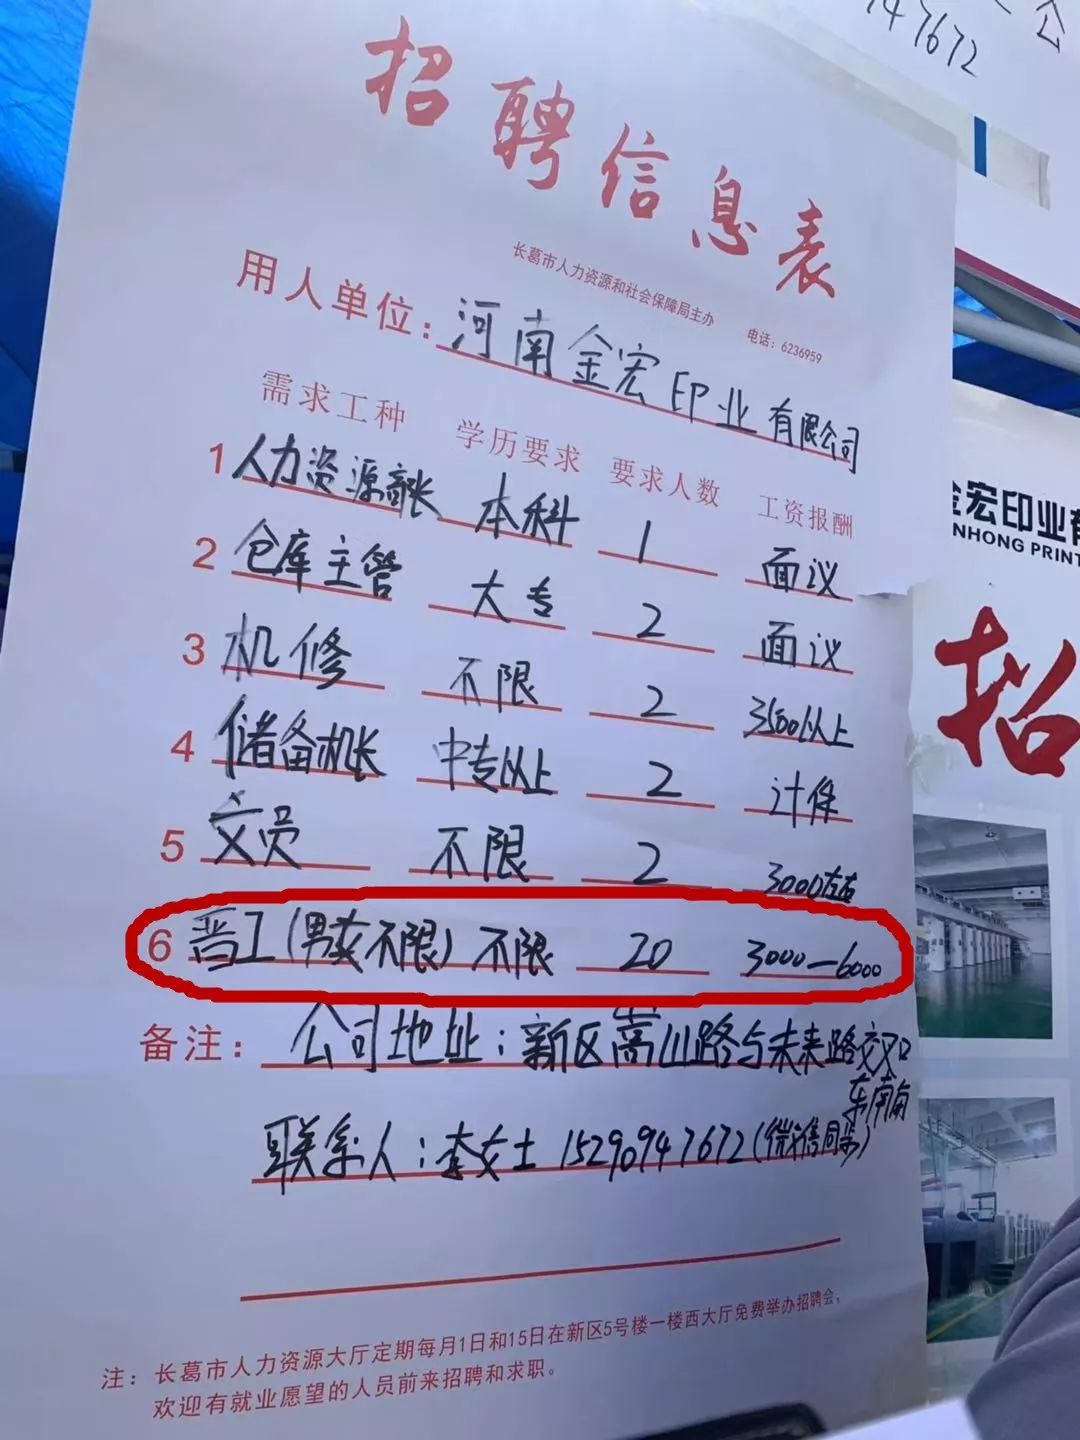 招聘信息表
长葛市人力资源和社会保障局主办 电话：6236959
用人单位：河南金宏印业有限公司
需求工种 学历要求 要求人数 工资报酬
1 人力资源部长 本科 1 面议
2 仓库主管 大专 2 面议
3 机修 不限 2 3500以上
4 储备机长 中专以上 2 计件
5 文员 不限 2 3000左右
6 普工(男女不限) 不限 20 3000—6000
备注：公司地址：新区嵩山路与未来路交叉口
东南角
联系人：李女士 15290947672(微信同步)
注：长葛市人力资源大厅定期每月1日和15日在新区5号楼一楼西大厅免费举办招聘会，
欢迎有就业愿望的人员前来招聘和求职。
公
47672
金宏印业有
NHONG PRINT
招